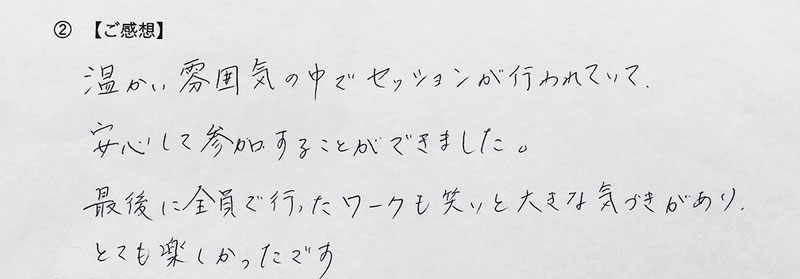 ② 【ご感想】
温かい雰囲気の中でセッションが行われていて、
安心して参加することができました。
最後に全員で行ったワークも笑いと大きな気づきがあり、
とても楽しかったです